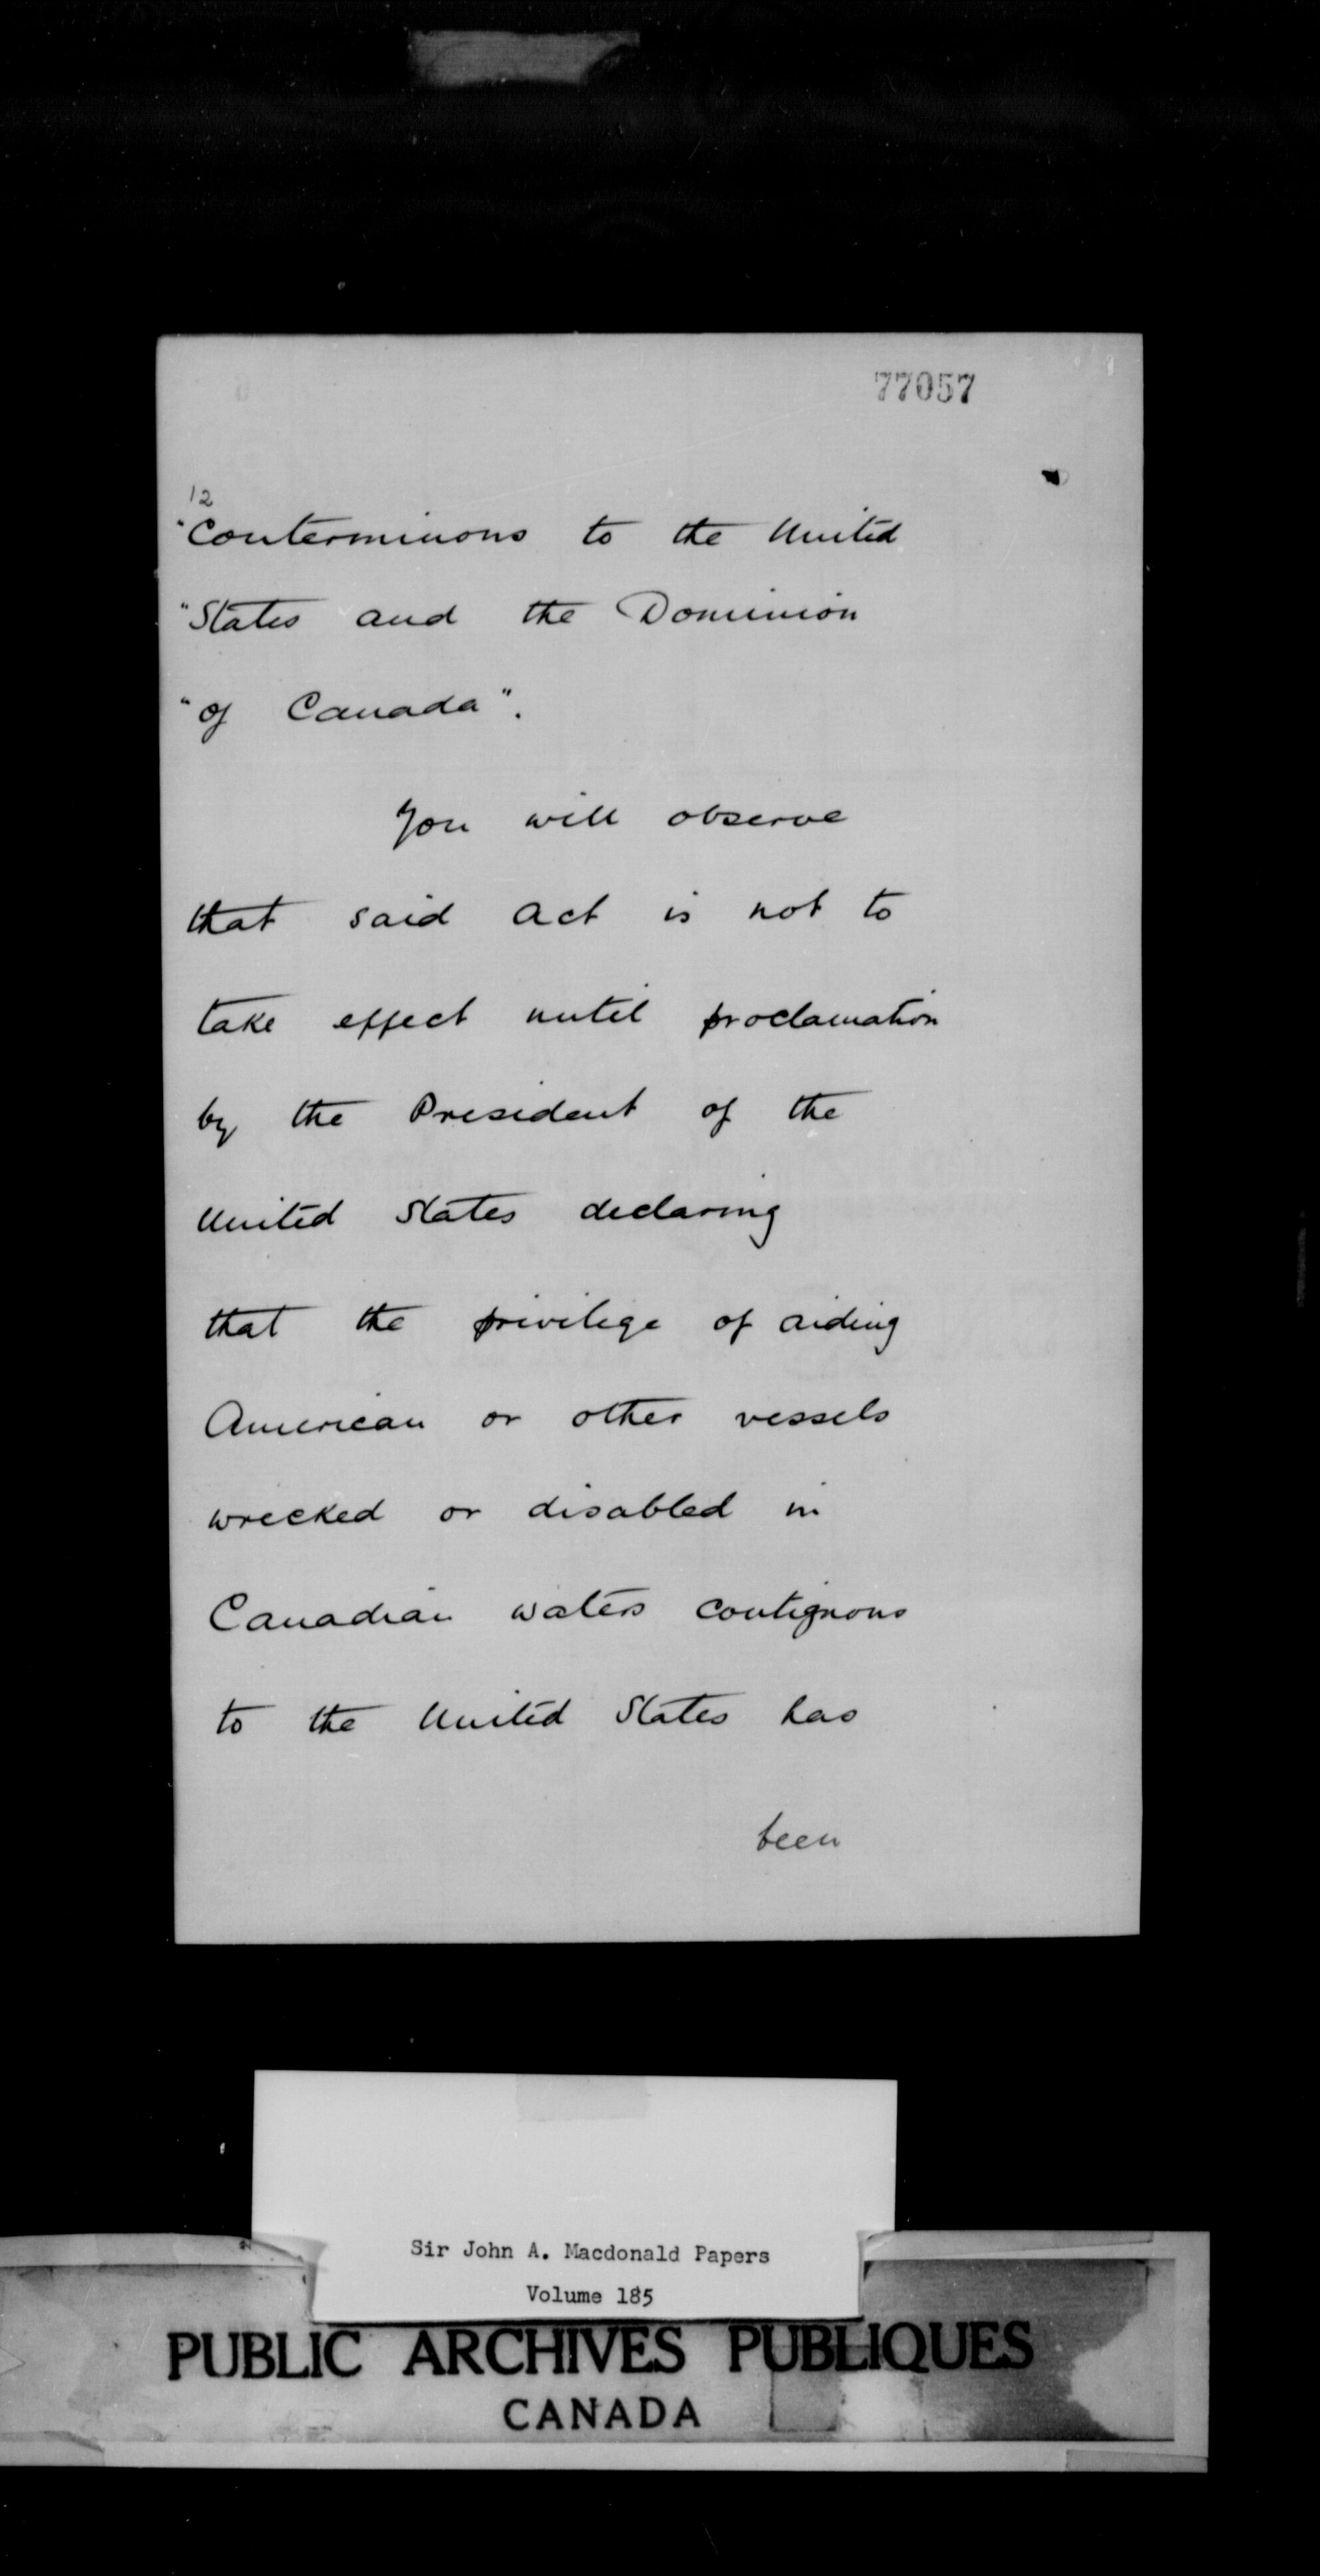 77057
12
"Conterminous to the United
"States and the Dominion
"of Canada".
You will observe
that said act is not to
take effect until proclamation
by the President of the
United States declaring
that the privilege of aiding
American or other vessels
wrecked or disabled in
Canadian waters contiguous
to the United States has
been
Sir John A. Macdonald Papers
Volume 185
PUBLIC ARCHIVES PUBLIQUES
CANADA